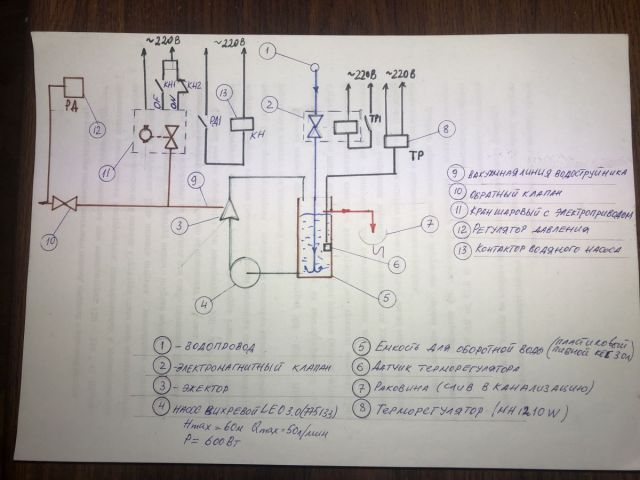 ~220В
~220В
~220В
~220В
КН1
КН2
OF
ON
РД
12
11
РД1
13
КН
1
2
ТР1
8
ТР
9
3
10
4
7
6
5
9 ВАКУУМНАЯ ЛИНИЯ ВОДОСТРУЙНИКА
10 ОБРАТНЫЙ КЛАПАН
11 КРАН ШАРОВЫЙ С ЭЛЕКТРОПРИВОДОМ
12 РЕГУЛЯТОР ДАВЛЕНИЯ
13 КОНТАКТОР ВОДЯНОГО НАСОСА
1 - ВОДОПРОВОД
2 -ЭЛЕКТРОМАГНИТНЫЙ КЛАПАН
3 - ЭЖЕКТОР
4 НАСОС ВИХРЕВОЙ LEO 3.0 (775133)
Hmax = 60м Qmax = 50л/мин
P = 600Вт
5 ЕМКОСТЬ ДЛЯ ОБОРОТНОЙ ВОДЫ (ПЛАСТИКОВЫЙ ПИВНОЙ КЕГ 30л)
6 ДАТЧИК ТЕРМОРЕГУЛЯТОРА
7 РАКОВИНА (СЛИВ В КАНАЛИЗАЦИЮ)
8 ТЕРМОРЕГУЛЯТОР (МН1210W)